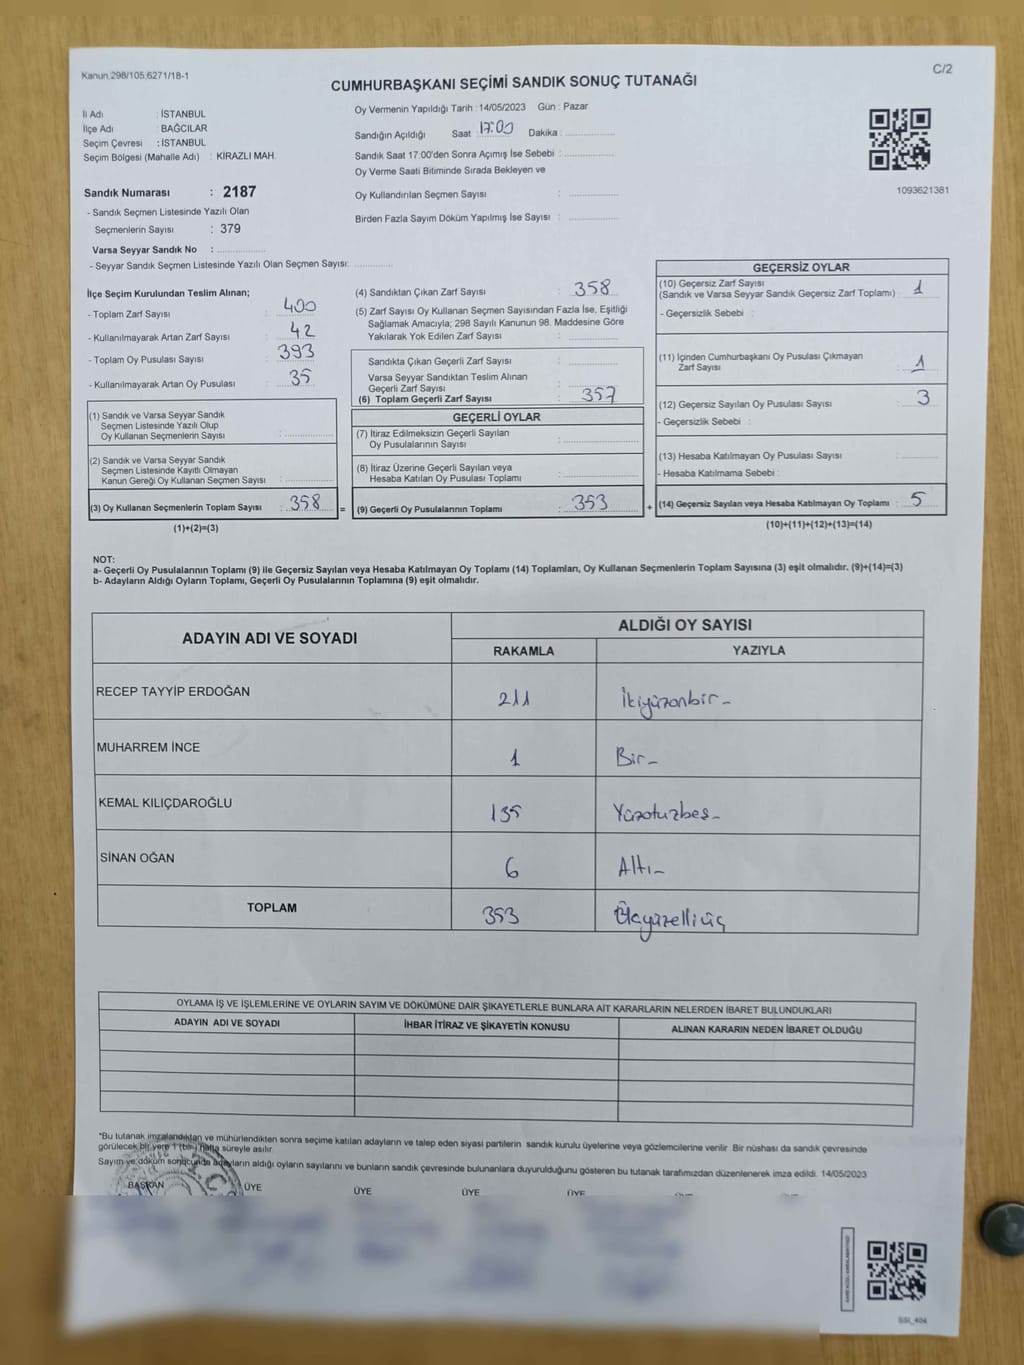 Kanun.298/105,6271/18-1
C/2
CUMHURBAŞKANI SEÇİMİ SANDIK SONUÇ TUTANAĞI
İl Adı : İSTANBUL
İlçe Adı : BAĞCILAR
Seçim Çevresi : İSTANBUL
Seçim Bölgesi (Mahalle Adı) : KİRAZLI MAH.
Oy Vermenin Yapıldığı Tarih : 14/05/2023 Gün : Pazar
Sandığın Açıldığı Saat 17:00 Dakika :
Sandık Saat 17:00'den Sonra Açımış İse Sebebi :
Oy Verme Saati Bitiminde Sırada Bekleyen ve
Oy Kullandırılan Seçmen Sayısı :
Birden Fazla Sayım Döküm Yapılmış İse Sayısı :
1093621381
Sandık Numarası : 2187
- Sandık Seçmen Listesinde Yazılı Olan
Seçmenlerin Sayısı : 379
Varsa Seyyar Sandık No :
- Seyyar Sandık Seçmen Listesinde Yazılı Olan Seçmen Sayısı:
İlçe Seçim Kurulundan Teslim Alınan;
- Toplam Zarf Sayısı : 400
- Kullanılmayarak Artan Zarf Sayısı : 42
- Toplam Oy Pusulası Sayısı : 393
- Kullanılmayarak Artan Oy Pusulası : 35
(1) Sandık ve Varsa Seyyar Sandık
Seçmen Listesinde Yazılı Olup
Oy Kullanan Seçmenlerin Sayısı :
(2) Sandık ve Varsa Seyyar Sandık
Seçmen Listesinde Kayıtlı Olmayan
Kanun Gereği Oy Kullanan Seçmen Sayısı :
(3) Oy Kullanan Seçmenlerin Toplam Sayısı : 358 =
(1)+(2)=(3)
(4) Sandıktan Çıkan Zarf Sayısı : 358
(5) Zarf Sayısı Oy Kullanan Seçmen Sayısından Fazla İse, Eşitliği
Sağlamak Amacıyla; 298 Sayılı Kanunun 98. Maddesine Göre
Yakılarak Yok Edilen Zarf Sayısı :
Sandıkta Çıkan Geçerli Zarf Sayısı :
Varsa Seyyar Sandıktan Teslim Alınan
Geçerli Zarf Sayısı :
(6) Toplam Geçerli Zarf Sayısı : 357
GEÇERLİ OYLAR
(7) İtiraz Edilmeksizin Geçerli Sayılan
Oy Pusulalarının Sayısı :
(8) İtiraz Üzerine Geçerli Sayılan veya
Hesaba Katılan Oy Pusulası Toplamı :
(9) Geçerli Oy Pusulalarının Toplamı : 353 +
GEÇERSİZ OYLAR
(10) Geçersiz Zarf Sayısı
(Sandık ve Varsa Seyyar Sandık Geçersiz Zarf Toplamı) : 1
- Geçersizlik Sebebi :
(11) İçinden Cumhurbaşkanı Oy Pusulası Çıkmayan
Zarf Sayısı : 1
(12) Geçersiz Sayılan Oy Pusulası Sayısı : 3
- Geçersizlik Sebebi :
(13) Hesaba Katılmayan Oy Pusulası Sayısı :
- Hesaba Katılmama Sebebi :
(14) Geçersiz Sayılan veya Hesaba Katılmayan Oy Toplamı : 5
(10)+(11)+(12)+(13)=(14)
NOT:
a- Geçerli Oy Pusulalarının Toplamı (9) ile Geçersiz Sayılan veya Hesaba Katılmayan Oy Toplamı (14) Toplamları, Oy Kullanan Seçmenlerin Toplam Sayısına (3) eşit olmalıdır. (9)+(14)=(3)
b- Adayların Aldığı Oyların Toplamı, Geçerli Oy Pusulalarının Toplamına (9) eşit olmalıdır.
ADAYIN ADI VE SOYADI
ALDIĞI OY SAYISI
RAKAMLA YAZIYLA
RECEP TAYYİP ERDOĞAN 211 İkiyüzonbir-
MUHARREM İNCE 1 Bir-
KEMAL KILIÇDAROĞLU 135 Yüzotuzbeş-
SİNAN OĞAN 6 Altı-
TOPLAM 353 Üçyüzelliüç
OYLAMA İŞ VE İŞLEMLERİNE VE OYLARIN SAYIM VE DÖKÜMÜNE DAİR ŞİKAYETLERLE BUNLARA AİT KARARLARIN NELERDEN İBARET BULUNDUKLARI
ADAYIN ADI VE SOYADI İHBAR İTİRAZ VE ŞİKAYETİN KONUSU ALINAN KARARIN NEDEN İBARET OLDUĞU
*Bu tutanak imzalandıktan ve mühürlendikten sonra seçime katılan adayların ve talep eden siyasi partilerin sandık kurulu üyelerine veya gözlemcilerine verilir. Bir nüshası da sandık çevresinde
görülecek bir yere 1 (bir) hafta süreyle asılır.
Sayım ve döküm sonucunda adayların aldığı oyların sayılarını ve bunların sandık çevresinde bulunanlara duyurulduğunu gösteren bu tutanak tarafımızdan düzenlenerek imza edildi. 14/05/2023
BAŞKAN ÜYE ÜYE ÜYE ÜYE ÜYE